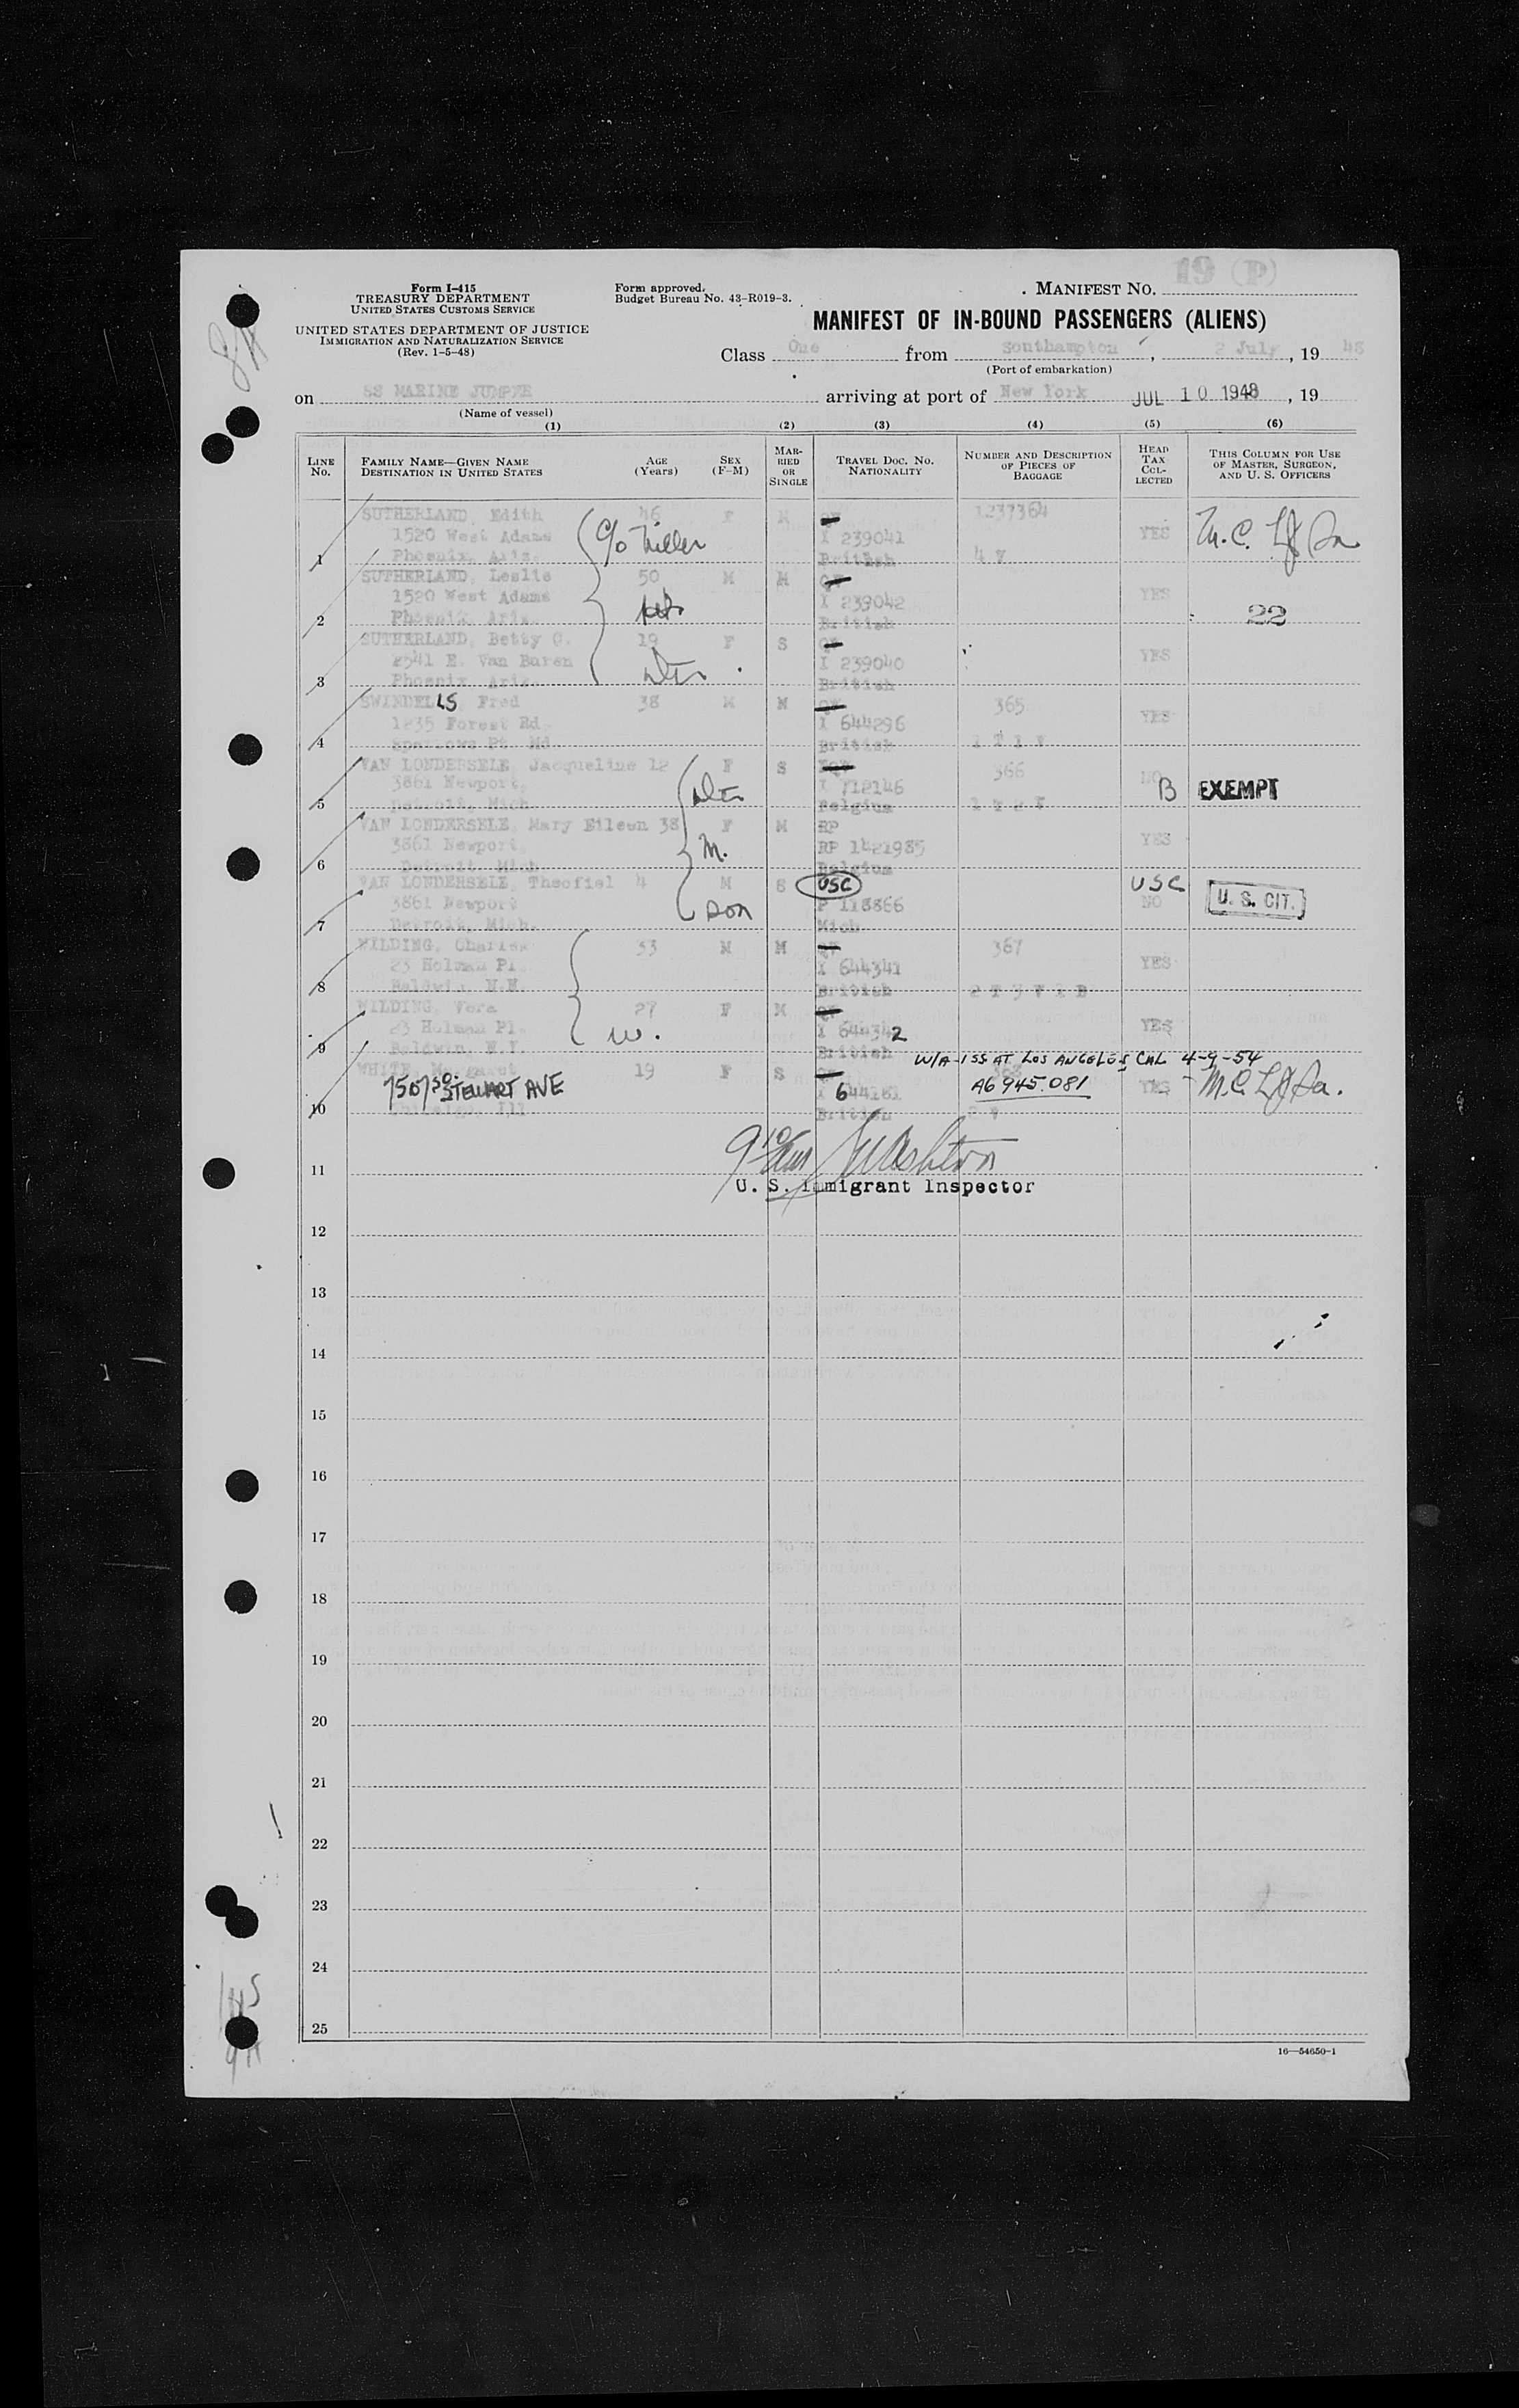 19 (P)
Form I-415
TREASURY DEPARTMENT
UNITED STATES CUSTOMS SERVICE
UNITED STATES DEPARTMENT OF JUSTICE
IMMIGRATION AND NATURALIZATION SERVICE
(Rev. 1-5-48)
Form approved.
Budget Bureau No. 43-R019-3.
MANIFEST NO.
MANIFEST OF IN-BOUND PASSENGERS (ALIENS)
Class One from Southampton, 2 July, 19 48
(Port of embarkation)
on SS MARINE JUMPER arriving at port of New York JUL 10 1948, 19
(Name of vessel)
(1) (2) (3) (4) (5) (6)
LINE No. FAMILY NAME—GIVEN NAME DESTINATION IN UNITED STATES AGE (Years) SEX (F-M) MARRIED OR SINGLE TRAVEL DOC. NO. NATIONALITY NUMBER AND DESCRIPTION OF PIECES OF BAGGAGE HEAD TAX COLLECTED THIS COLUMN FOR USE OF MASTER, SURGEON, AND U. S. OFFICERS
SUTHERLAND, Edith 46 F M 1237364
1520 West Adams c/o Miller I 239041 YES
1 Phoenix, Ariz. British 4 V
SUTHERLAND, Leslie 50 M M
1520 West Adams I 239042 YES
2 Phoenix, Ariz. British 22
SUTHERLAND, Betty G. 19 F S
2541 E. Van Buren I 239040 YES
3 Phoenix, Ariz. dtr British
SWINDELLS Fred 38 M M 365
1235 Forest Rd. I 644296 YES
4 Sparrows Pt. Md. British 1 T 1 V
VAN LONDERSELE, Jacqueline 12 F S 366
3861 Newport, dtr I 712146 NO B EXEMPT
5 Detroit, Mich. Belgium
VAN LONDERSELE, Mary Eileen 38 F M RP
3861 Newport, M. RP 1421985 YES
6 Detroit, Mich Belgium
VAN LONDERSELE, Theofiel 4 M S USC USC
3861 Newport son P 118866 NO U. S. CIT.
7 Detroit, Mich. Mich
WILDING, Charles 33 M M 367
23 Holman Pl I 644341 YES
8 Baldwin, N.Y. British 2 T 3 V 1 B
WILDING, Vera 27 F M
23 Holman Pl. w. I 644342 YES
9 Baldwin, N.Y. British
W/A-155 AT LOS ANGELES CAL 4-9-54
WHITE, Margaret 19 F S 368
STEWART AVE A6 945 081 YES
10 British 2 V
11
U. S. Immigrant Inspector
12
13
14
15
16
17
18
19
20
21
22
23
24
25
16—54650-1